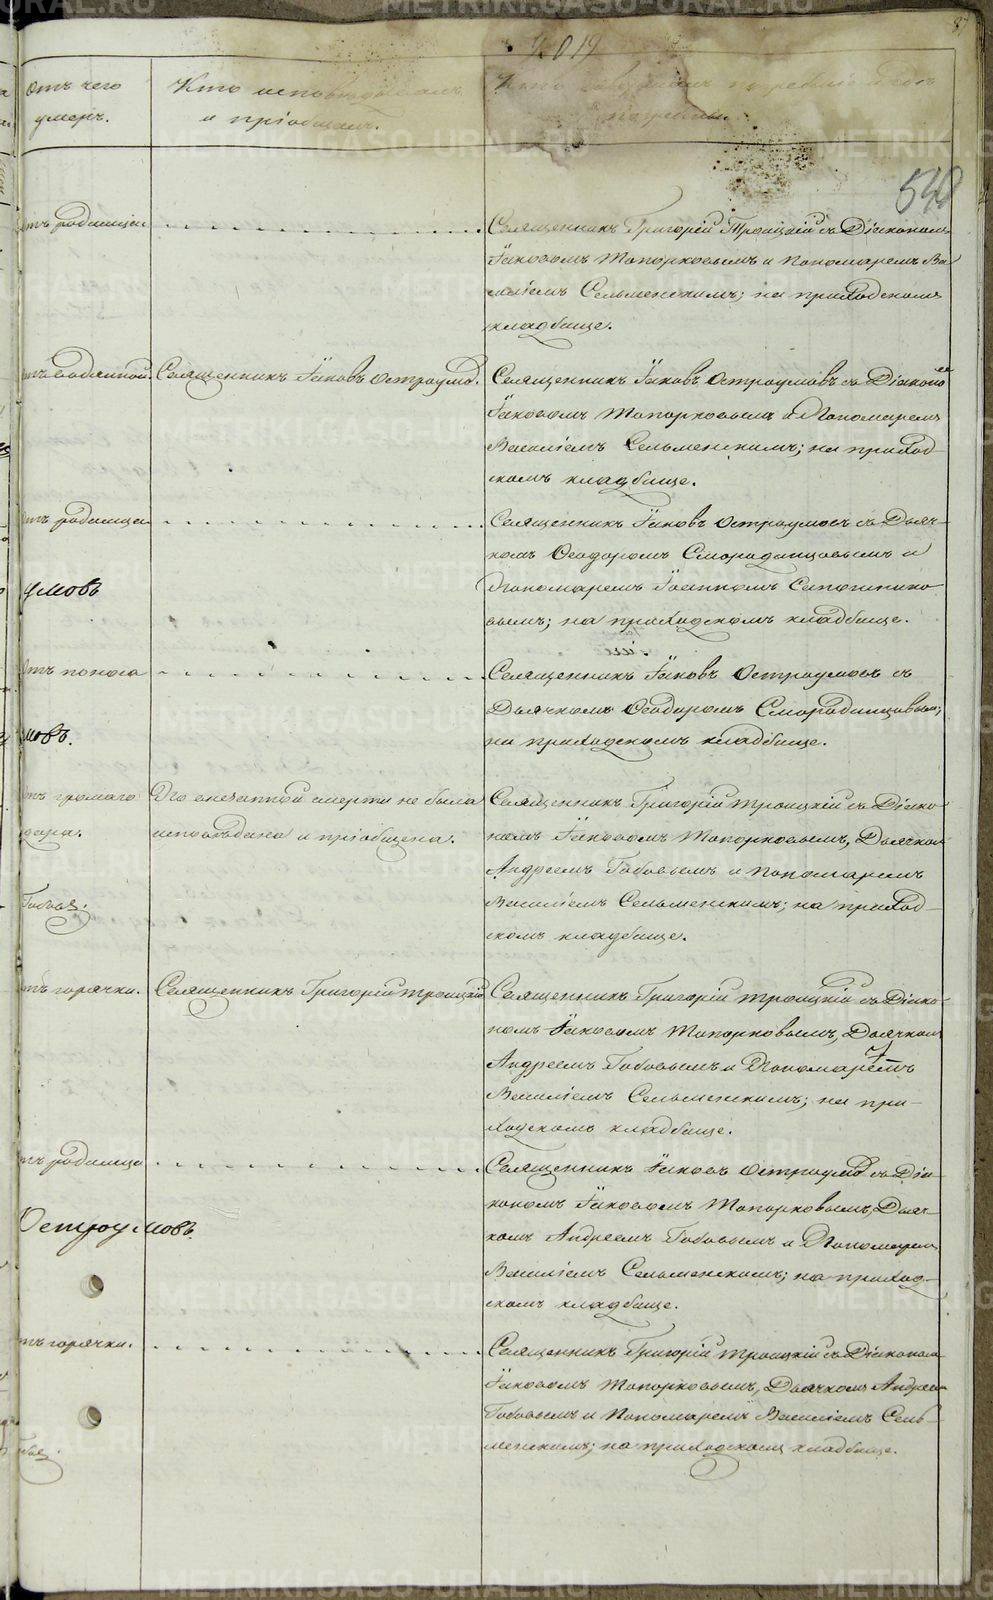 отъ чего
умеръ.
Кто исповѣдывалъ
и пріобщалъ.
погребены
540
отъ родимца
Священникъ Григорій Троицкій съ Діакономъ
Іаковомъ Топорковымъ и Пономаремъ Ва-
силіемъ Сельменскимъ; на приходскомъ
кладбище.
отъ водяной.
Священникъ Іаковъ Остроумовъ.
Священникъ Іаковъ Остроумовъ съ Діакономъ
Іаковомъ Топорковымъ и Пономаремъ
Василіемъ Сельменскимъ; на приход-
скомъ кладбище.
отъ родимца
Священникъ Іаковъ Остроумовъ съ Дьяч-
комъ Ѳеодоромъ Смородинцовымъ и
Пономаремъ Іоанномъ Сапожнико-
вымъ; на приходскомъ кладбище.
умовъ
отъ поноса
Священникъ Іаковъ Остроумовъ съ
Дьячкомъ Ѳеодоромъ Смородинцовымъ;
на приходскомъ кладбище.
мовъ.
отъ громаго
удара.
По внезапной смерти не была
исповѣдана и пріобщена.
Священникъ Григорій Троицкій съ Діако-
номъ Іаковомъ Топорковымъ, Дьячкомъ
Андреемъ Бабовымъ и Пономаремъ
Василіемъ Сельменскимъ; на приход-
скомъ кладбище.
отъ горячки.
Священникъ Григорій Троицкій
Священникъ Григорій Троицкій съ Діако-
номъ Іаковомъ Топорковымъ, Дьячкомъ
Андреемъ Бабовымъ и Пономаремъ
Василіемъ Сельменскимъ; на при-
ходскомъ кладбище.
отъ родимца
Священникъ Іаковъ Остроумовъ съ Діа-
кономъ Іаковомъ Топорковымъ, Дьяч-
комъ Андреемъ Бабовымъ и Пономаремъ
Василіемъ Сельменскимъ; на приход-
скомъ кладбище.
Остроумовъ.
отъ горячки.
Священникъ Григорій Троицкій съ Діакономъ
Іаковомъ Топорковымъ, Дьячкомъ Андреемъ
Бабовымъ и Пономаремъ Василіемъ Сель-
менскимъ; на приходскомъ кладбище.
METRIKI.GASO-URAL.RU